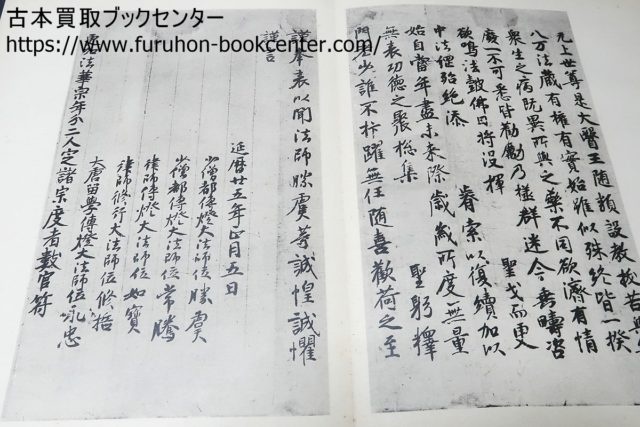 古本買取ブックセンター
https://www.furuhon-bookcenter.com/
无上世尊是大醫王随類設教抜苦
八万法蔵有權有實始雖似殊終皆一揆
衆生之病既異所與之藥不同欲濟有情
廢一不可悉皆勸勵乃拯群迷今垂疇咨
欲鳴法皷佛日將没揮 聖戈而更
中法係殆絶添 睿索以復續加以
始自當年盡未來際歳歳所度無量
無表功徳之聚惣集 聖躬釋
門老少誰不抃躍無任随喜歡荷之至
謹奉表以聞法師勝虞等誠惶誠懼
謹言
延暦廿五年正月五日
少僧都傳燈大法師位勝虞
少僧都傳燈大法師位常騰
律師傳燈大法師位如寶
律師修行大法師位修哲
大唐留學傳燈大法師位永忠
法華宗年分二人定諸宗度者數官符